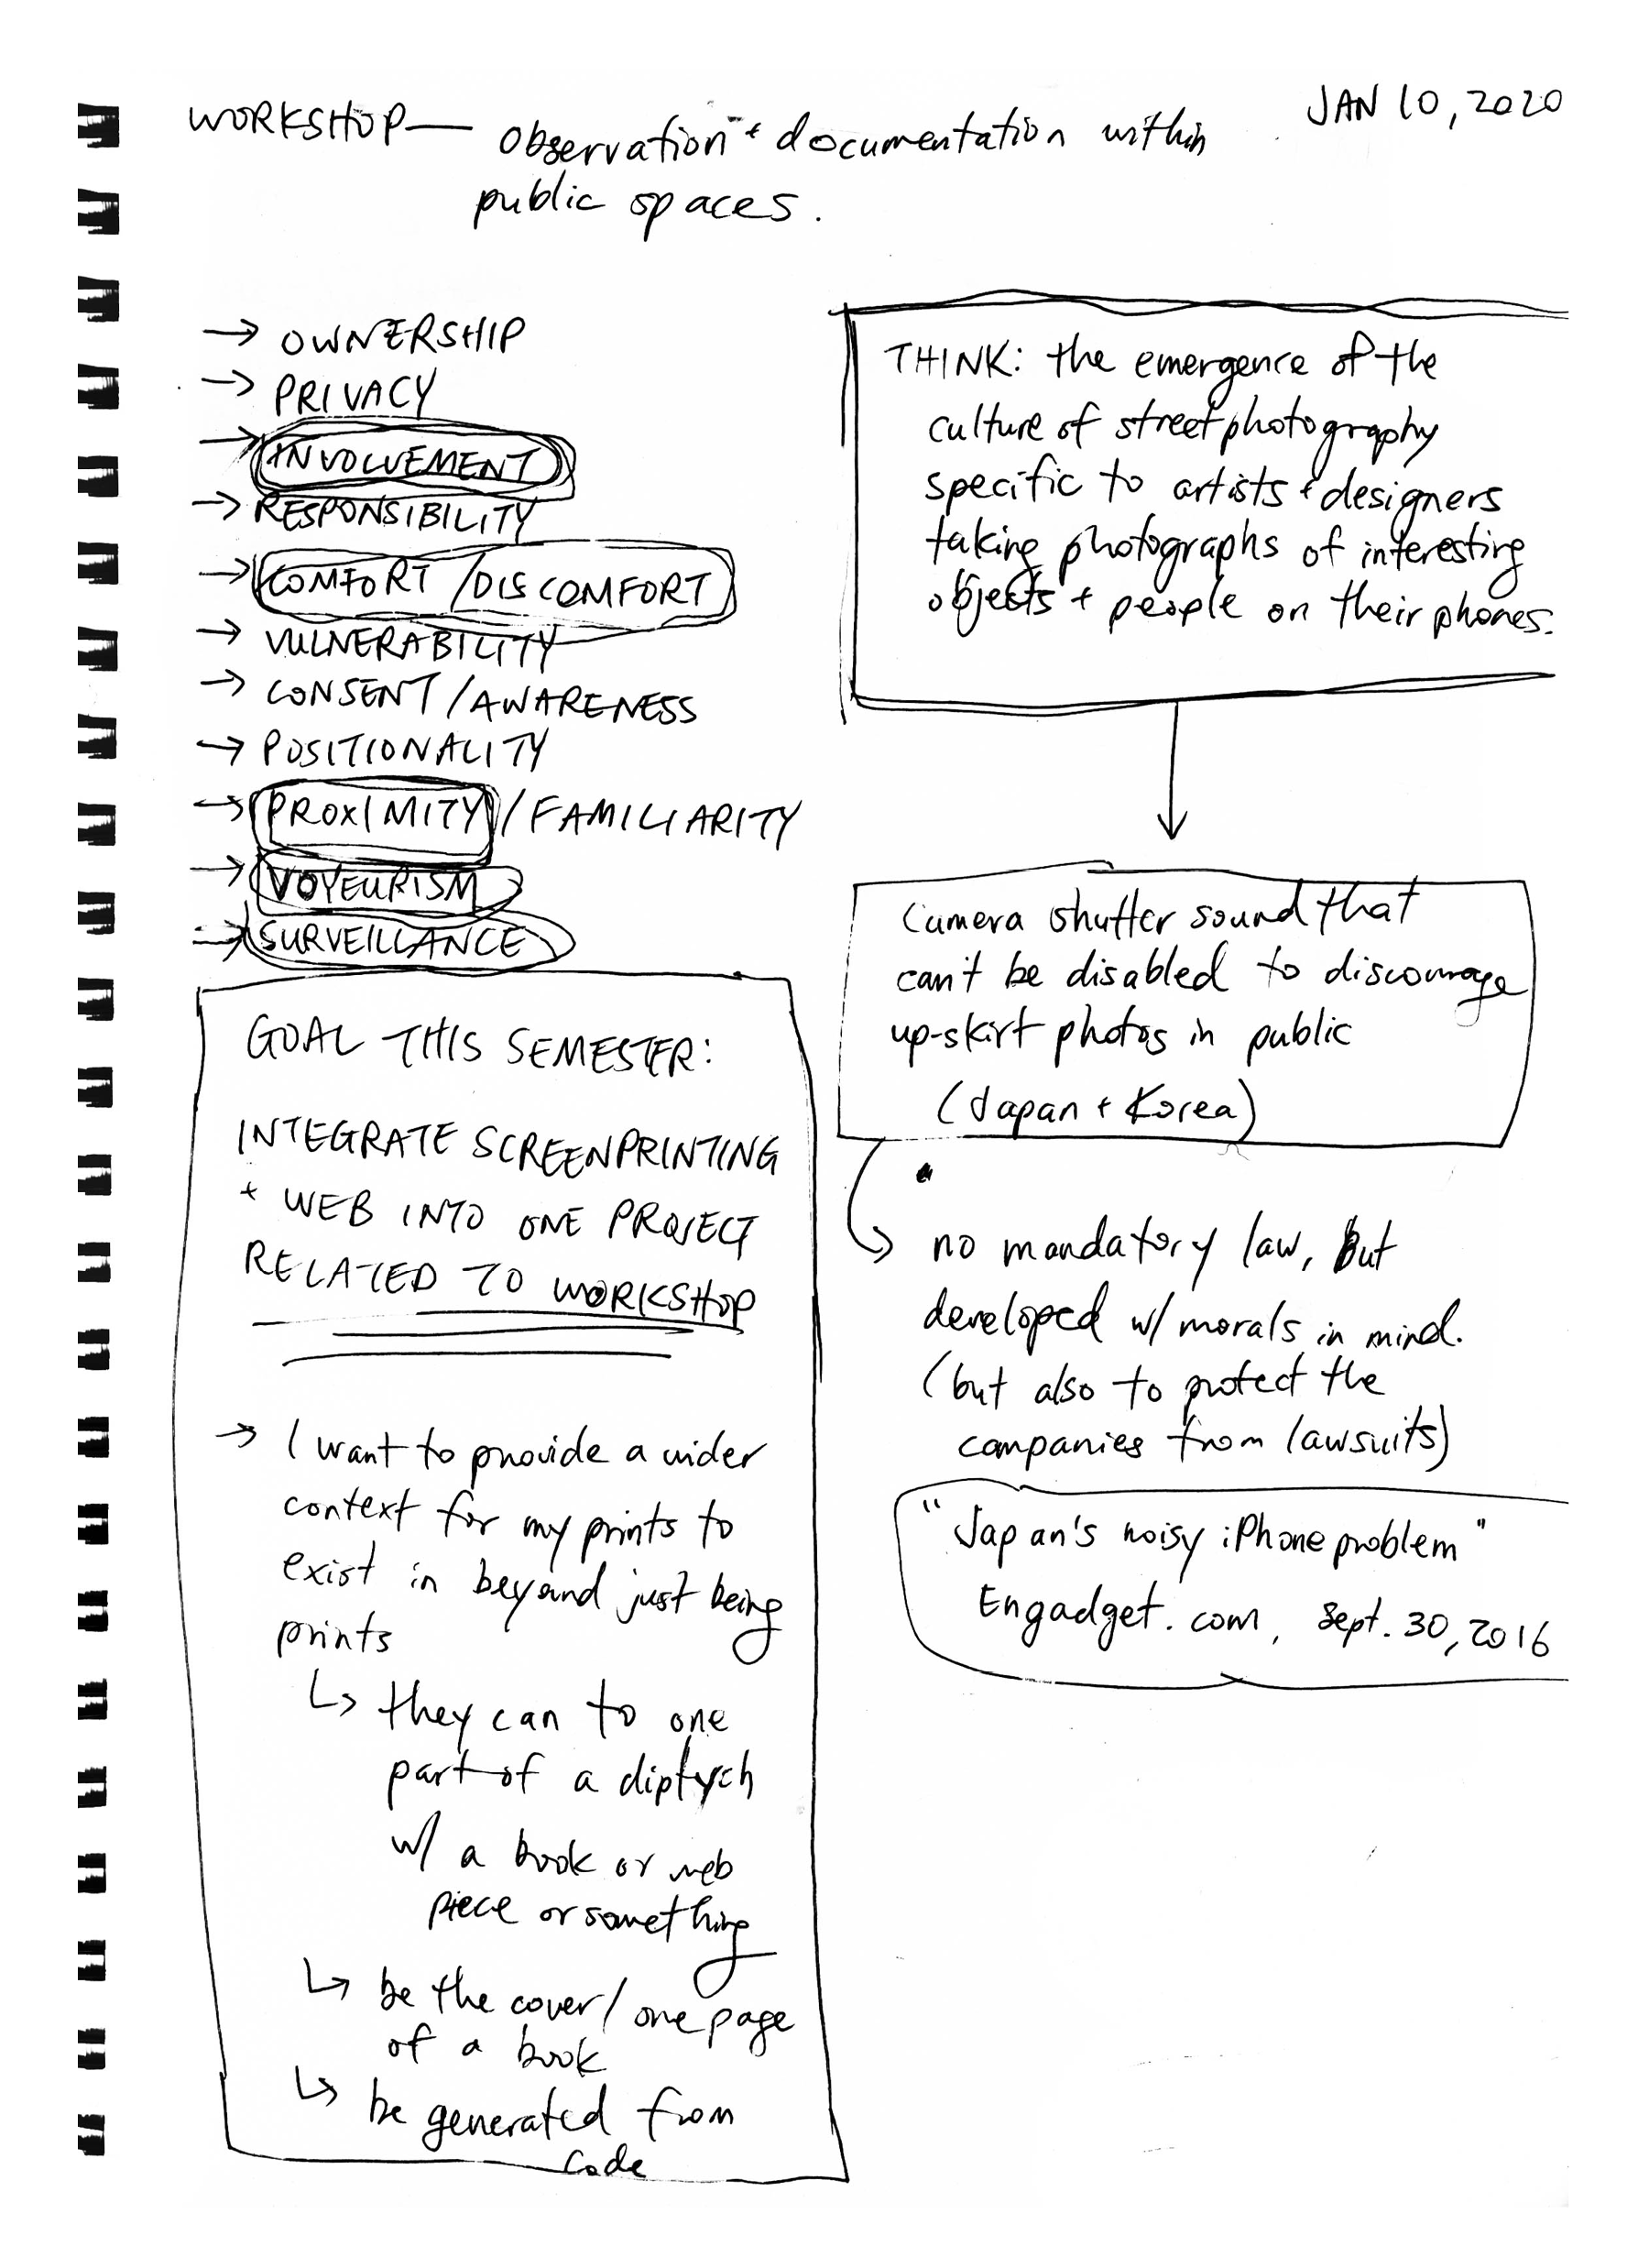 WORKSHOP— observation + documentation within
public spaces.
JAN 10, 2020
→ OWNERSHIP
→ PRIVACY
→ INVOLVEMENT
→ RESPONSIBILITY
→ COMFORT / DISCOMFORT
→ VULNERABILITY
→ CONSENT / AWARENESS
→ POSITIONALITY
→ PROXIMITY / FAMILIARITY
→ VOYEURISM
→ SURVEILLANCE
GOAL THIS SEMESTER:
INTEGRATE SCREENPRINTING
+ WEB INTO ONE PROJECT
RELATED TO WORKSHOP
→ I want to provide a wider
context for my prints to
exist in beyond just being
prints
↳ they can to one
part of a diptych
w/ a book or web
piece or something
↳ be the cover / one page
of a book
↳ be generated from
code
THINK: the emergence of the
culture of street photography
specific to artists + designers
taking photographs of interesting
objects + people on their phones.
Camera shutter sound that
can't be disabled to discourage
up-skirt photos in public
(Japan + Korea)
↳ no mandatory law, But
developed w/ morals in mind.
(but also to protect the
companies from lawsuits)
"Japan's noisy iPhone problem"
Engadget.com, Sept. 30, 2016